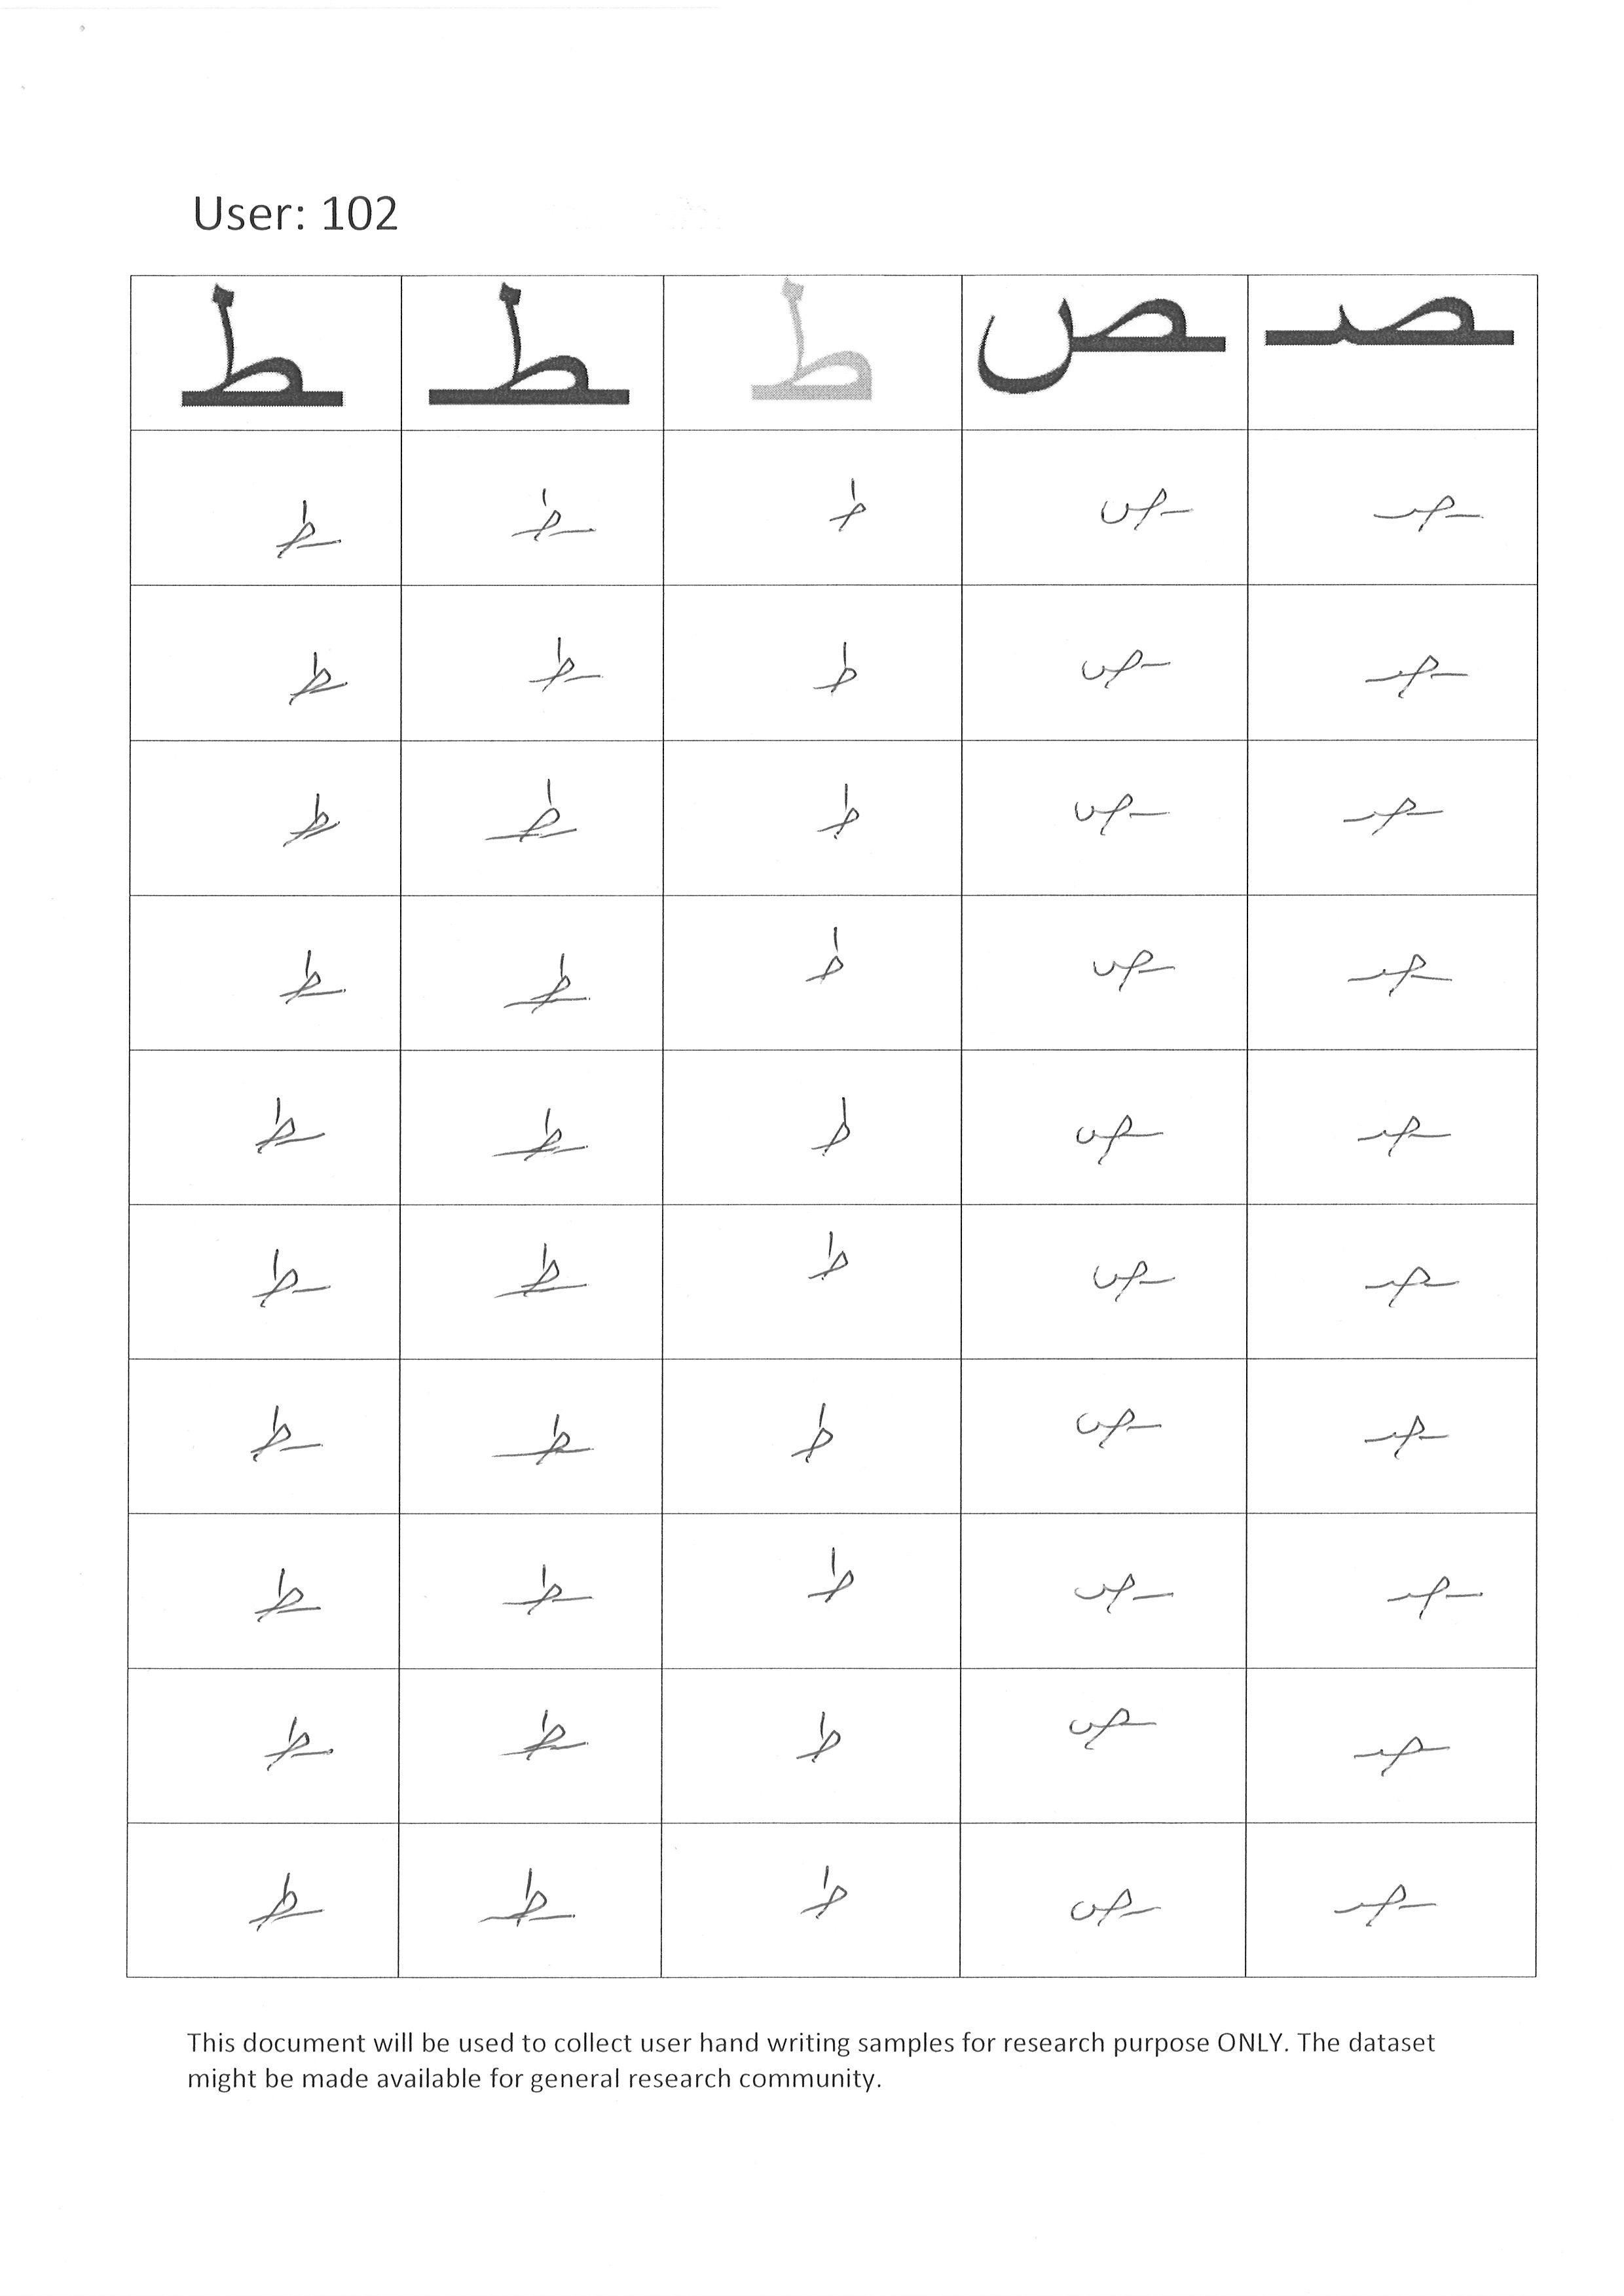 User: 102
ـط ـطـ ط ـص ـصـ
ـط ـطـ ط ـص ـصـ
ـط ـطـ ط ـص ـصـ
ـط ـطـ ط ـص ـصـ
ـط ـطـ ط ـص ـصـ
ـط ـطـ ط ـص ـصـ
ـط ـطـ ط ـص ـصـ
ـط ـطـ ط ـص ـصـ
ـط ـطـ ط ـص ـصـ
ـط ـطـ ط ـص ـصـ
ـط ـطـ ط ـص ـصـ
This document will be used to collect user hand writing samples for research purpose ONLY. The dataset
might be made available for general research community.